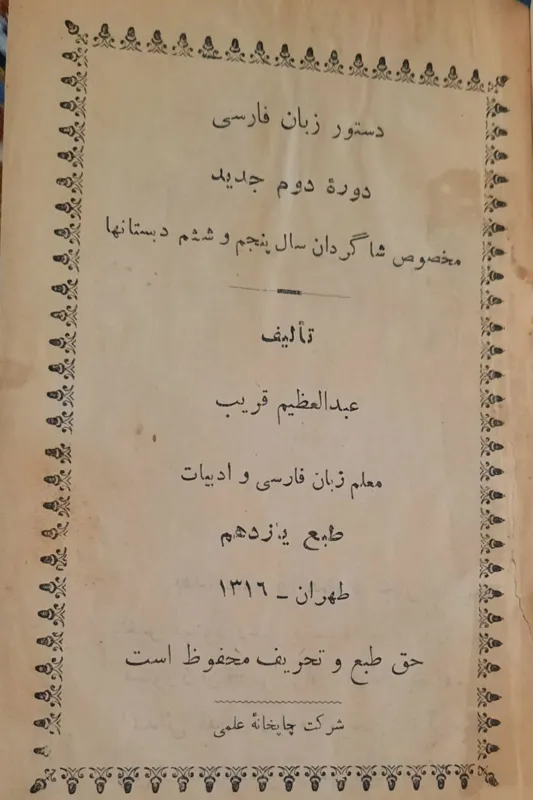 دستور زبان فارسی
دورهٔ دوم جدید
مخصوص شاگردان سال پنجم و ششم دبستانها
تألیف
عبدالعظیم قریب
معلم زبان فارسی و ادبیات
طبع یازدهم
طهران ـ ۱۳۱۶
حق طبع و تحریف محفوظ است
شرکت چاپخانهٔ علمی